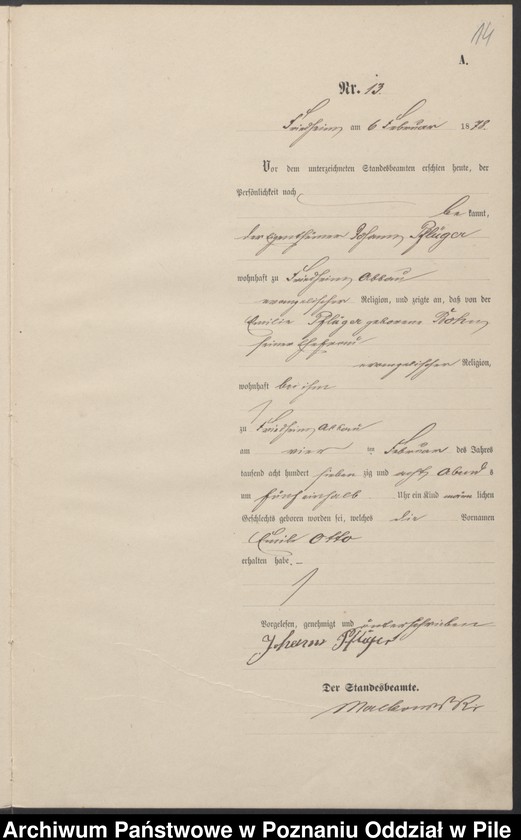 14
A.
Nr. 13.
Friedheim am 6 Februar 1878.
Vor dem unterzeichneten Standesbeamten erschien heute, der
Persönlichkeit nach
be kannt,
der Eigenthümer Johann Pflüger
wohnhaft zu Friedheim Abbau
evangelischer Religion, und zeigte an, daß von der
Emilie Pflüger geborene
seiner Ehefrau
evangelischer Religion,
wohnhaft bei ihm
zu Friedheim Abbau
am vier ten Februar des Jahres
tausend acht hundert sieben zig und acht Abends
um fünf einhalb Uhr ein Kind männ lichen
Geschlechts geboren worden sei, welches die Vornamen
Emil Otto
erhalten habe. —
Vorgelesen, genehmigt und unterschrieben
Johann Pflüger
Der Standesbeamte.
Archiwum Państwowe w Poznaniu Oddział w Pile